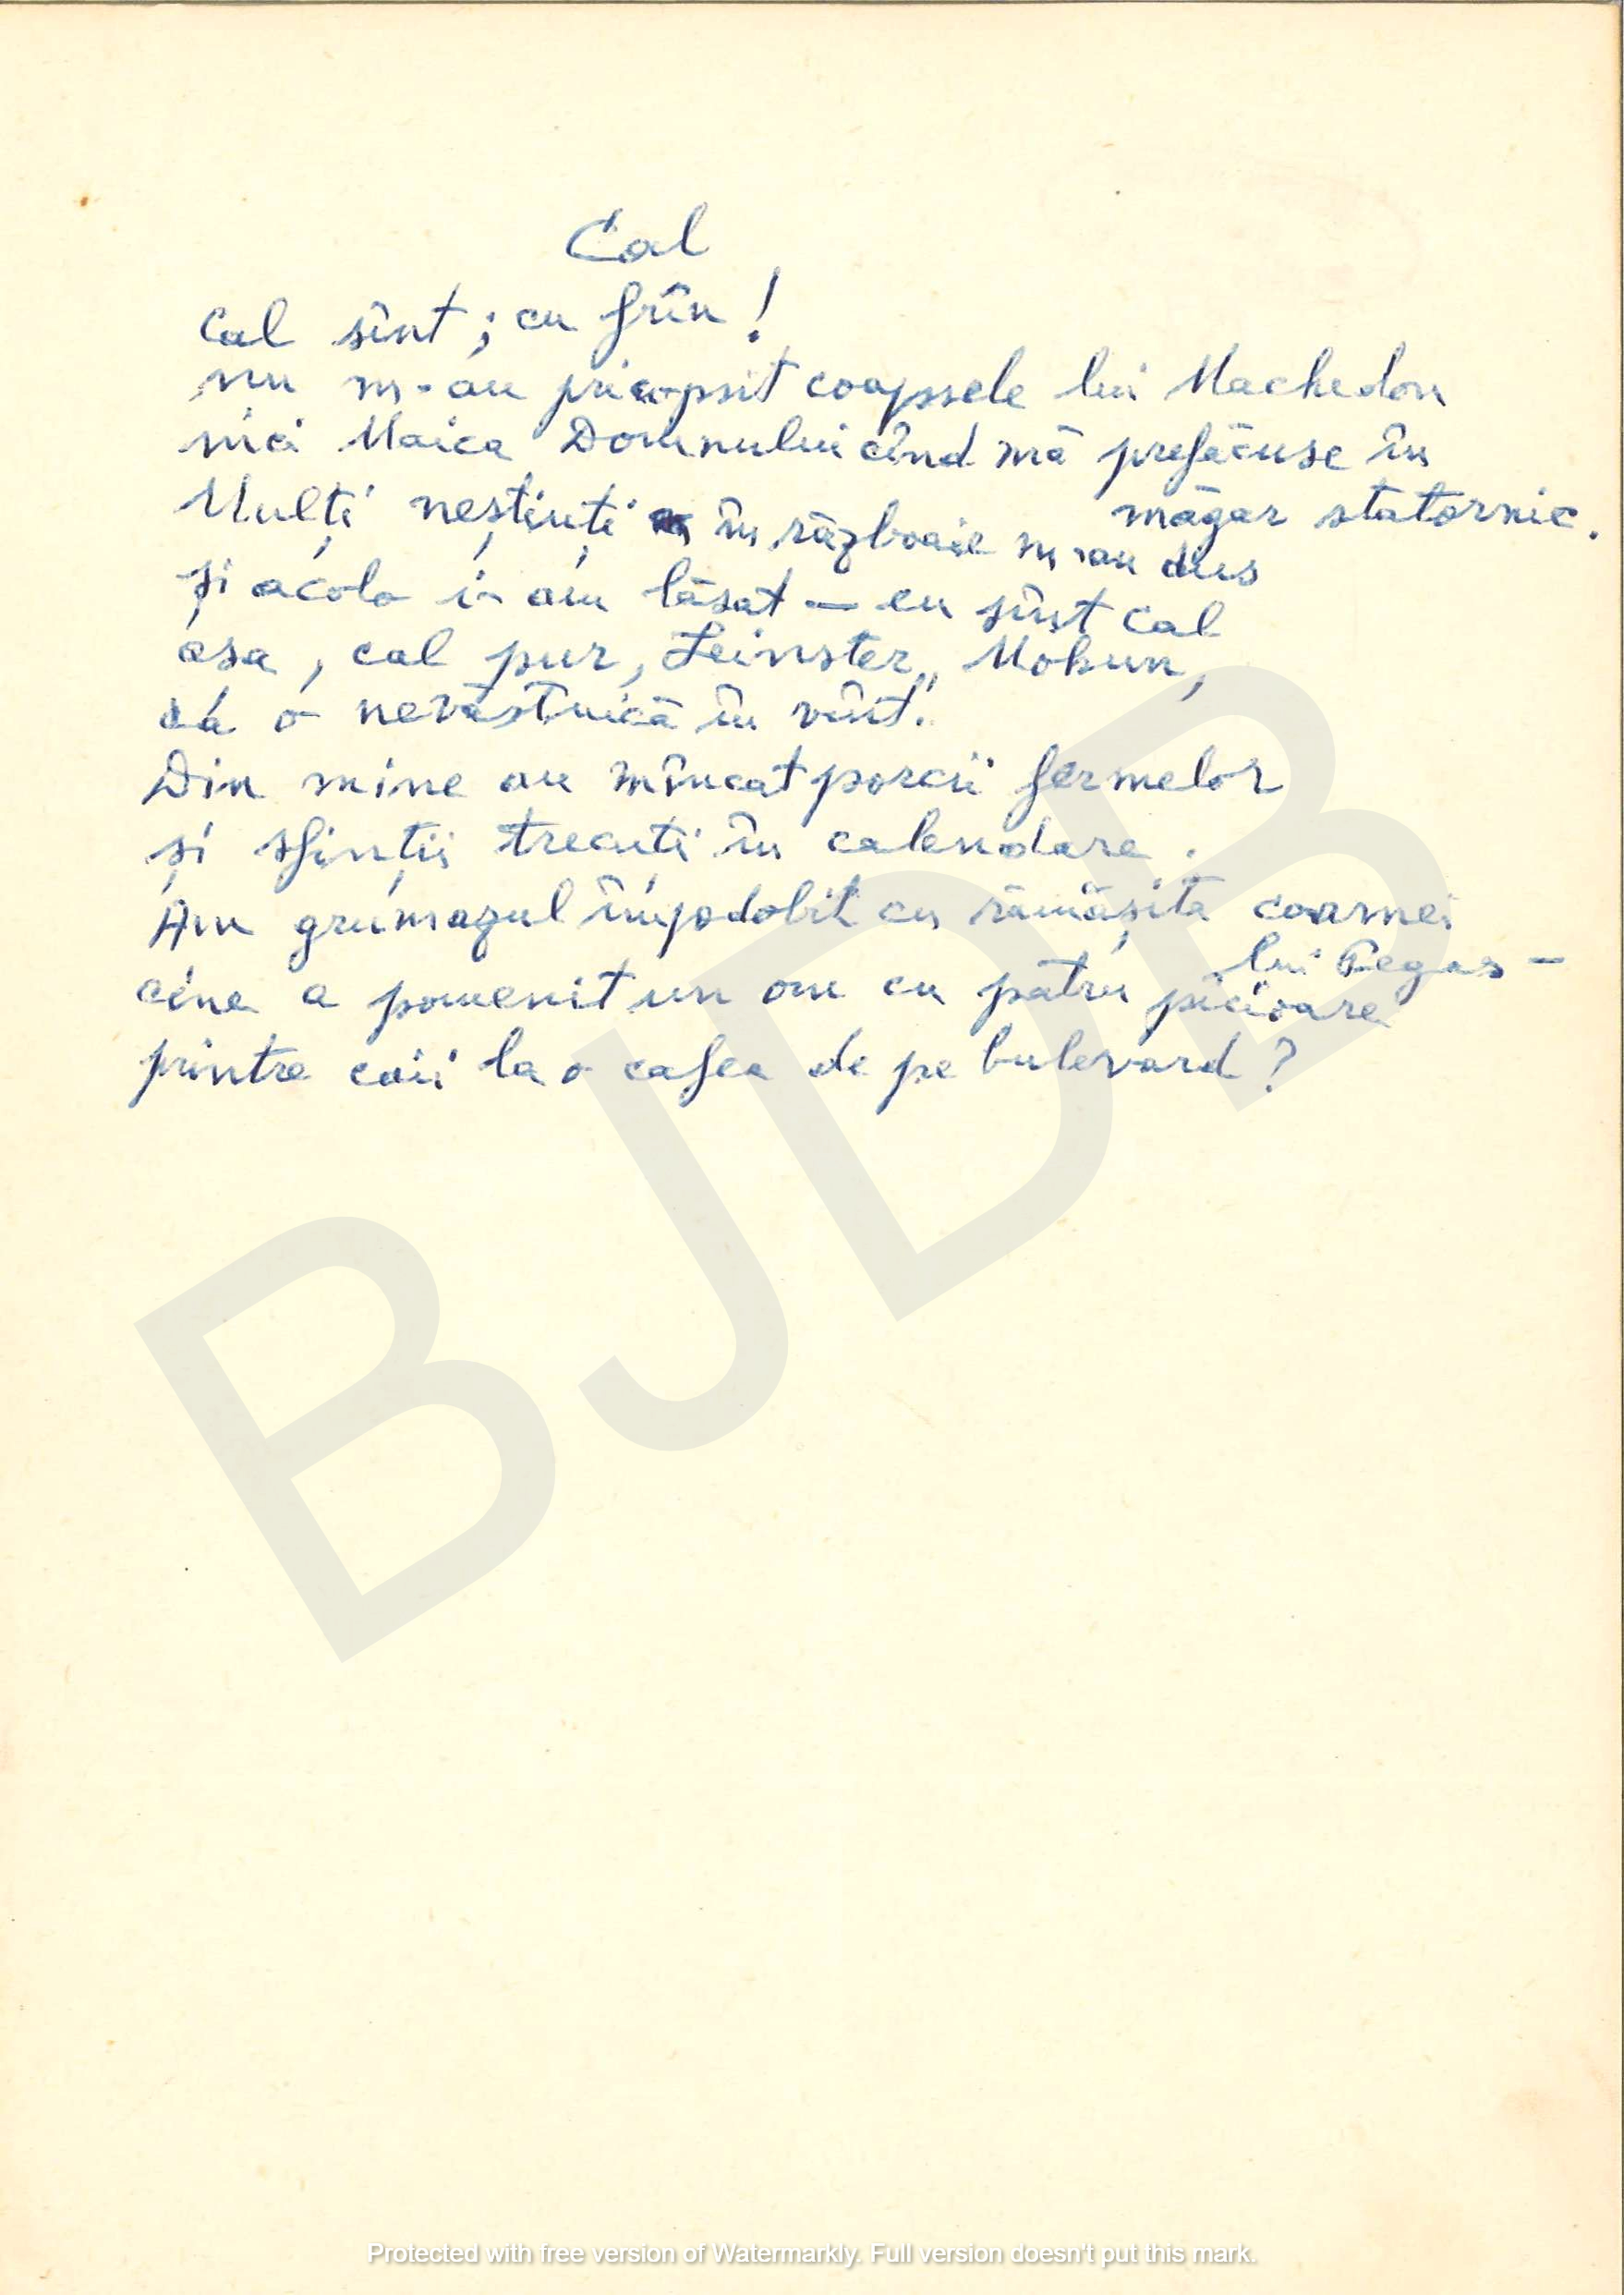 Cal
Cal sînt ; cu frîn !
nu m-au pricopsit coapsele lui Machedon
nici Maica Domnului cînd mă prefăcuse în
măgar statornic.
Mulți neștiuți în războaie m-au dus
și acolo i-am lăsat — eu sînt cal
așa, cal pur, Leinster, Mohun,
ca o nevăstuică în vînt.
Din mine au mîncat porcii fermelor
și sfinții trecuți în calendare.
Am grumazul împodobit cu rămășița coamei
lui Pegas –
cine a pomenit un om cu patru picioare
printre caii la o cafea de pe bulevard ?
BJDB
Protected with free version of Watermarkly. Full version doesn't put this mark.